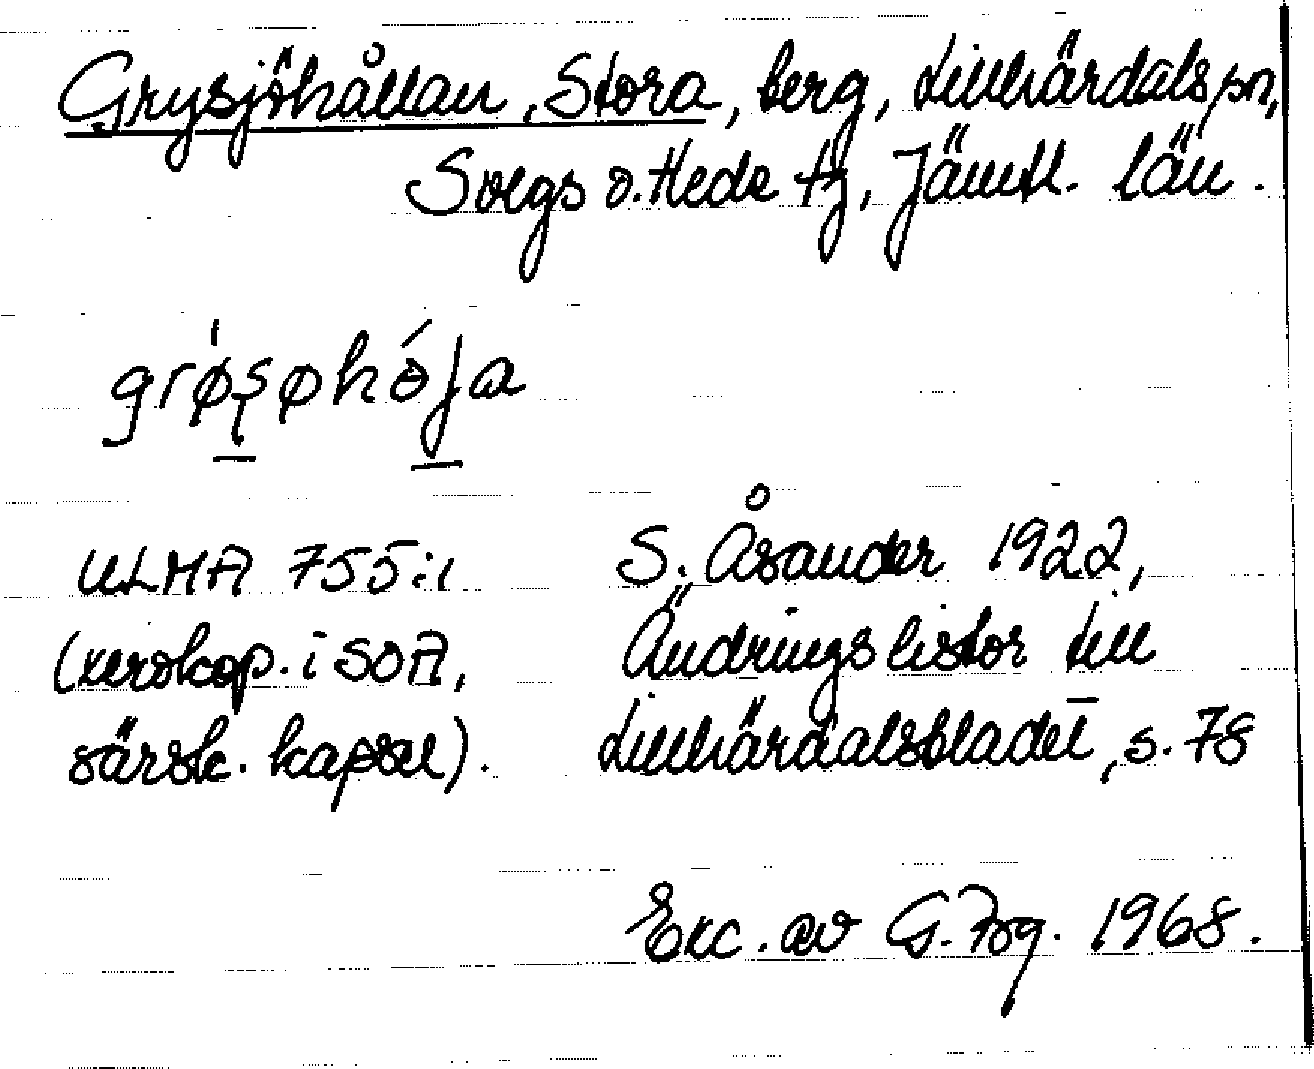 Grysjöhållan, Stora, berg, Lillhärdals sn,
Svegs o. Hede tg, Jämtl. län.
ULMA 755:1
(xerokop. i SOA,
särsk. kapsel).
S. Åsander 1922,
Ändringslistor till
Lillhärdalsbladet, s. 78
Exc. av G. Fbg. 1968.